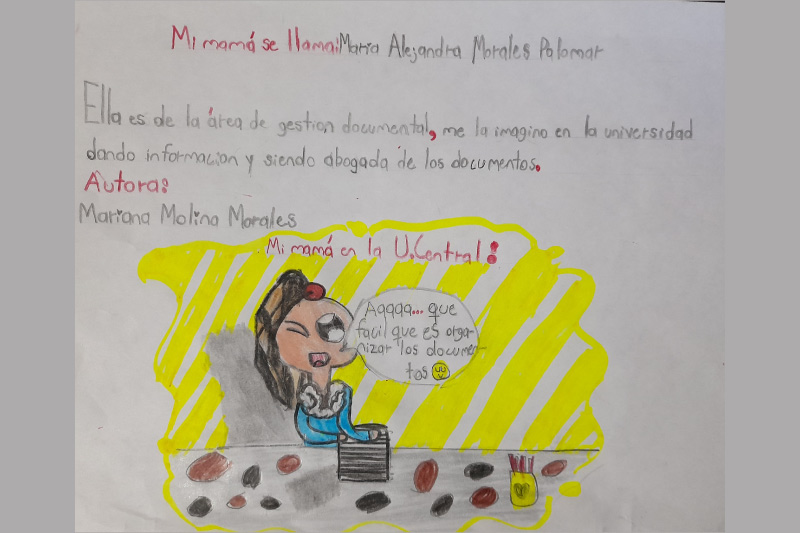 Mi mamá se llama: María Alejandra Morales Palomar
Ella es de la área de gestion documental, me la imagino en la universidad
dando informacion y siendo abogada de los documentos.
Autora:
Mariana Molina Morales
Mi mamá en la U.Central!
Aaaaa... que
facil que es orga-
nizar los documen-
tos